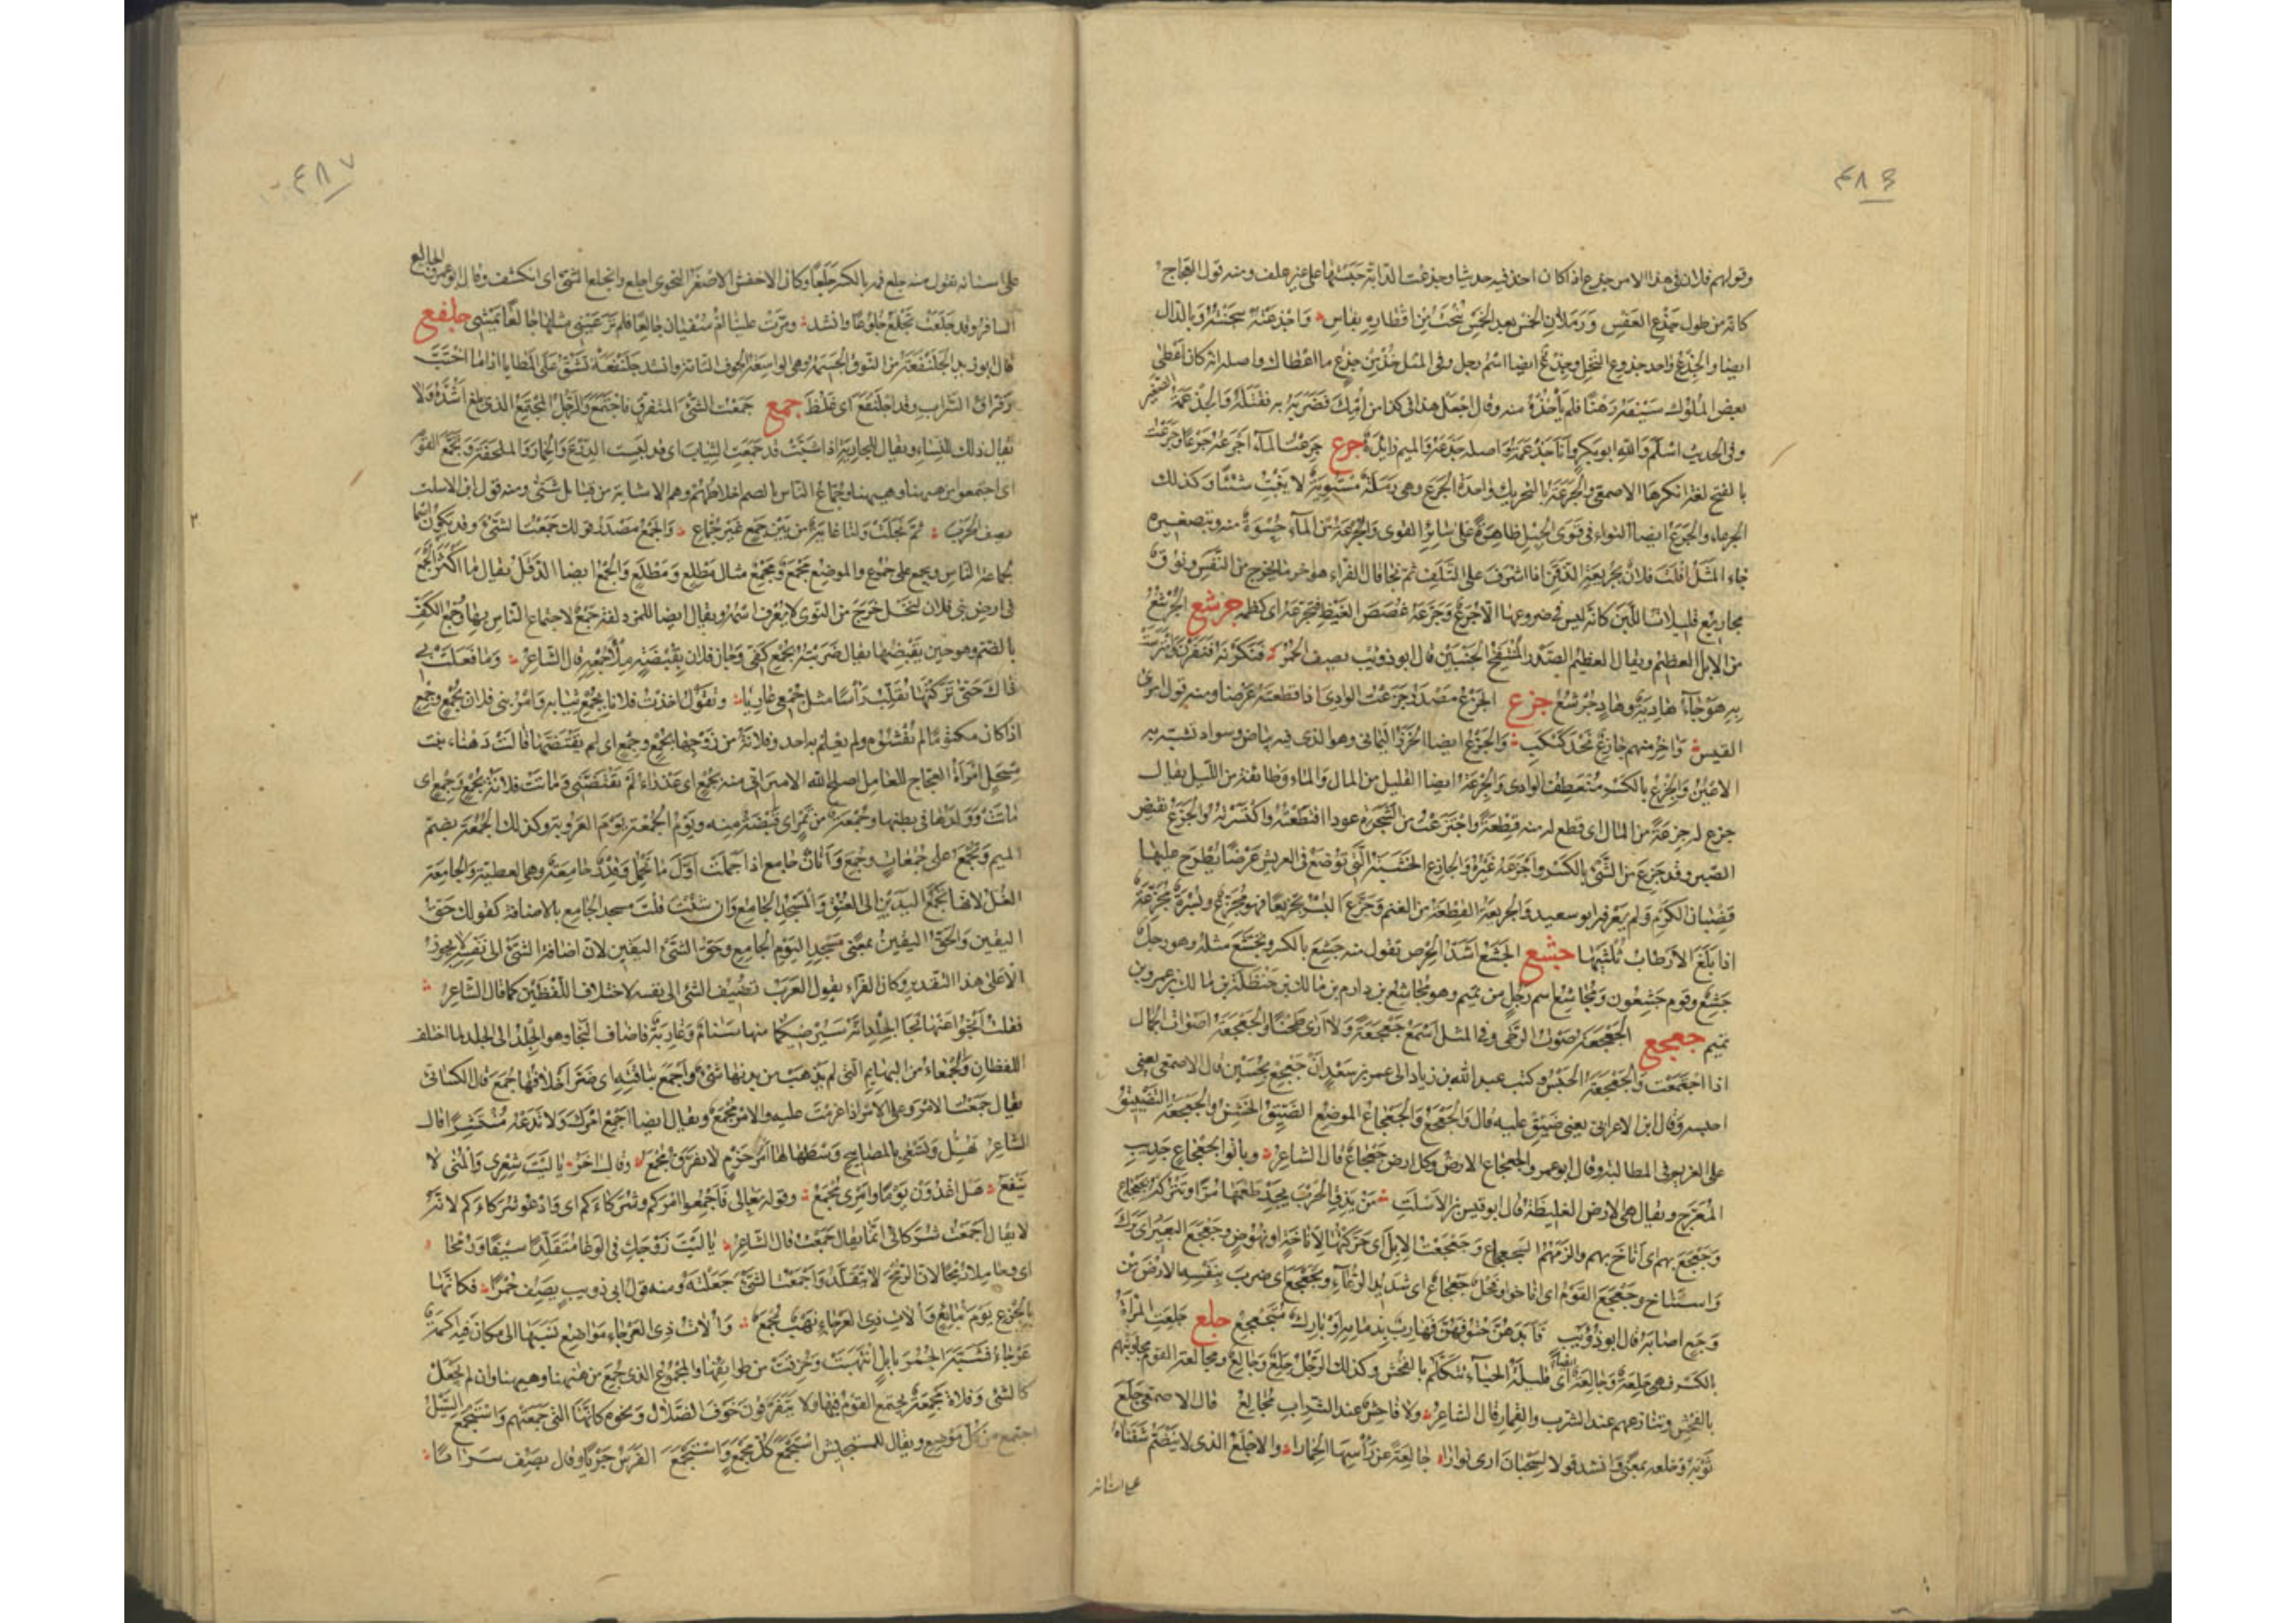 ٤٨٦
وقولهم فلان في هذا الامر جذع اذا كان اخذ فيه حديثا وجذعت الدابة حبستها على غير علف ومنه قول العجاج
كانه من طول جذع العفس ورملان الخمس بعد الخمس ينحت من اقطاره بفاس واجذعته سجنته وبالدال
ايضا والجذع واحد جذوع النخل وجذع ايضا اسم رجل وفي المثل خذ من جذع ما اعطاك واصله انه كان اعطى
بعض الملوك سيفه رهنا فلم ياخذه منه وقال اجعل هذا في كذا من امك فضربه به فقتله والجذعمة الصغير
وفي الحديث اسلم والله ابو بكر وانا جذعمة واصله جذعة والميم زائدة جرع جرعت الماء اجرعه جرعا وجرعت
بالفتح لغة انكرها الاصمعي والجرعة بالتحريك واحدة الجرع وهي رملة مستوية لا تنبت شيئا وكذلك
الجرعاء والجرع ايضا التواء في قوى الحبل ظاهرة على سائر القوى والجرعة من الماء حسوة منه وبتصغيره
جاء المثل افلت فلان بجريعة الذقن اذا اشرف على التلف ثم نجا قال الفراء هو اخر ما يخرج من النفس ونوق
مجاريع قليلات اللبن كانه ليس في ضروعها الا جرع وجرعه غصص الغيظ فتجرعه اي كظمه جرشع الجرشع
من الابل العظيم ويقال العظيم الصدر المنتفخ الجنبين قال ابو ذويب يصف الحمر فنكرنه فنفرن وامترست
به هوجاء هادية وهاد جرشع جزع الجزع مصدر جزعت الوادي اذا قطعته عرضا ومنه قول امرئ
القيس واخر منهم جازع نجد كبكب والجزع ايضا الخرز اليماني وهو الذي فيه بياض وسواد تشبه به
الاعين والجزع بالكسر منعطف الوادي والجزعة ايضا القليل من المال والماء وطائفة من الليل يقال
جزع له جزعة من المال اي قطع له منه قطعة واجتزعت من الشجرة عودا اقتطعته واكتسرته والجزع نقيض
الصبر وقد جزع من الشئ بالكسر واجزعه غيره والجازع الخشبة التي توضع في العريش عرضا يطرح عليها
قضبان الكرم ولم يعرفه ابو سعيد والجزيعة القطعة من الغنم وجزع البسر تجزيعا فهو مجزع وبسرة مجزعة
اذا بلغ الارطاب ثلثيها جشع الجشع اشد الحرص تقول منه جشع بالكسر وتجشع مثله وهو رجل
جشع وقوم جشعون ومجاشع اسم رجل من تميم وهو مجاشع بن دارم بن مالك بن حنظلة بن مالك بن عمرو بن
تميم جعجع الجعجعة صوت الرحى وفي المثل اسمع جعجعة ولا ارى طحنا والجعجعة اصوات الجمال
اذا اجتمعت والجعجعة الحبس وكتب عبيد الله بن زياد الى عمر بن سعد ان جعجع بحسين قال الاصمعي يعني
احبسه وقال ابن الاعرابي يعني ضيق عليه قال والجعجع والجعجاع الموضع الضيق الخشن والجعجعة التضييق
على الغريم في المطالبة وقال ابو عمرو الجعجاع الارض وكل ارض جعجاع قال الشاعر وباتوا بجعجاع جديب
المعرج ويقال هي الارض الغليظة قال ابو قيس بن الاسلت من يذق الحرب يجد طعمها مرا وتتركه بجعجاع
وجعجع بهم اي اناخ بهم والزمهم الجعجاع وجعجعت الابل اي حركتها لاناخة او نهوض وجعجع البعير اي برك
واستناخ وجعجع القوم اي اناخوا وفحل جعجاع اي شديد الرغاء وتجعجع اي ضرب بنفسه الارض من
وجع اصابه قال ابو ذويب فابدهن حتوفهن فهارب بذمائه او بارك متجعجع جلع جلعت المراة
بالكسر فهي جلعة وجالعة ايضا اي قليلة الحياء تتكلم بالفحش وكذلك الرجل جلع وجالع ومجالعة القوم مجاوبتهم
بالفحش وتنازعهم عند الشرب والقمار قال الشاعر ولا فاحش عند الشراب مجالع قال الاصمعي جلع
ثوبه وخلعه بمعنى وانشد قولا لسحبان ارى نوارا جالعة عن راسها الخمارا والاجلع الذي لا ينضم شفتاه
على اسنانه
٤٨٧
على اسنانه تقول منه جلع فمه بالكسر جلعا وكان الاخفش الاصغر النحوي اجلع وانجلع الشئ اي انكشف وقال ابو عمرو الجالع
السافر وقد جلعت تجلع جلوعا وانشد ومرت علينا ام سفيان جالعا فلم تر عيني مثلها جالعا تمشي جلفع
قال ابو زيد الجلنفعة من النوق الجسيمة وهي الواسعة الجوف التامة وانشد جلنفعة تشق على المطايا اذا ما اختب
رقراق السراب وقد اجلنفع اي غلظ جمع جمعت الشئ المتفرق فاجتمع والرجل المجتمع الذي بلغ اشده ولا
يقال ذلك للنساء ويقال للجارية اذا شبت قد جمعت الثياب اي قد لبست الدرع والخمار والملحفة وتجمع القوم
اي اجتمعوا من ههنا وههنا وجماع الناس بالضم اخلاطهم وهم الاشابة من قبائل شتى ومنه قول ابن الاسلت
يصف الحرب ثم تجلت ولنا غاية من بين جمع غير جماع والجمع مصدر قولك جمعت الشئ وقد يكون اسما
لجماعة الناس ويجمع على جموع والموضع مجمع ومجمع مثال مطلع ومطلع والجمع ايضا الدقل يقال ما اكثر الجمع
في ارض بني فلان لنخل خرج من النوى لا يعرف اسمه ويقال ايضا للمزدلفة جمع لاجتماع الناس بها وجمع الكف
بالضم وهو حين يقبضها يقال ضربته بجمع كفي وجاء فلان بقبضة ملء جمعه قال الشاعر وما فعلت بي
ذاك حتى تركتها تقلب راسا مثل جمعي عاريا وتقول اخذت فلانا بجمع ثيابه وامر بني فلان بجمع وجمع
اذا كان مكتوما لم يفشوه ولم يعلم به احد وفلانة من زوجها بجمع وجمع اي لم يقتضها قالت دهناء بنت
مسحل امراة العجاج للعامل اصلح الله الامير اني منه بجمع اي عذراء لم يقتضني وماتت فلانة بجمع وجمع اي
ماتت وولدها في بطنها وجمعة من تمر اي قبضة منه ويوم الجمعة يوم العروبة وكذلك الجمعة بضم
الميم ويجمع على جمعات وجمع واتان جامع اذا حملت اول ما تحمل وقدر جامعة وهي العظيمة والجامعة
الغل لانها تجمع اليدين الى العنق والمسجد الجامع وان شئت قلت مسجد الجامع بالاضافة كقولك حق
اليقين والحق اليقين بمعنى مسجد اليوم الجامع وحق الشئ اليقين لان اضافة الشئ الى نفسه لا يجوز
الا على هذا التقدير وكان الفراء يقول العرب تضيف الشئ الى نفسه لاختلاف اللفظين كما قال الشاعر
فقلت انجوا عنها نجا الجلد انه سيرضيكما منها سنام وغاربه فاضاف النجا وهو الجلد الى الجلد لما اختلف
اللفظان والجمعاء من البهائم التي لم يذهب من بدنها شئ واجمع بناقته اي صر اخلافها جمع قال الكسائي
يقال جمعت الامر وعلى الامر اذا عزمت عليه والامر مجمع ويقال ايضا اجمع امرك ولا تدعه منتشرا قال
الشاعر تهل وتسعى بالمصابيح وسطها لها امر حزم لا يفرق مجمع وقال اخر يا ليت شعري والمنى لا
ينفع هل اغدون يوما وامري مجمع وقوله تعالى فاجمعوا امركم وشركاءكم اي وادعوا شركاءكم لانه
لا يقال اجمعت شركائي انما يقال جمعت قال الشاعر يا ليت زوجك في الوغا متقلدا سيفا ورمحا
اي وحاملا رمحا لان الرمح لا يتقلد واجمعت الشئ جعلته ومنه قول ابي ذويب يصف حمرا فكانها
بالجزع يوم نبايع والات ذي العرجاء نهب مجمع والات ذي العرجاء مواضع نسبها الى مكان فيه اكمة
عرجاء فشبه الحمر بابل انتهبت وخزقت من طوائفها والمجموع الذي جمع من ههنا وههنا وان لم يجعل
كالشئ وفلاة مجمعة يجتمع القوم فيها ولا يتفرقون خوف الضلال ونحوه كانها التي جمعتهم واستجمع السيل
اجتمع من كل موضع ويقال للمستجيش استجمع كل مجمع واستجمع الفرس جريا وقال يصف سرابا